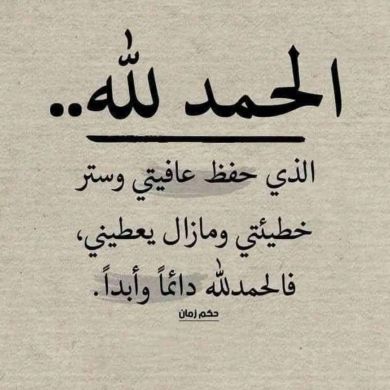 الحمد لله..
الذي حفظ عافيتي وستر
خطيئتي ومازال يعطيني،
فالحمدلله دائماً وأبداً.
حكم زمان